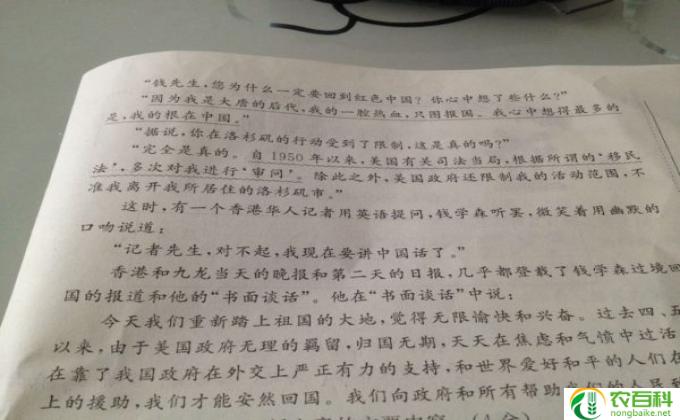 “钱先生，您为什么一定要回到红色中国？你心中想了些什么？”
“因为我是大唐的后代，我的一腔热血，只图报国。我心中想得最多的
是，我的根在中国。”
“据说，你在洛杉矶的行动受到了限制，这是真的吗？”
“完全是真的。自1950年以来，美国有关司法当局，根据所谓的‘移民
法’，多次对我进行‘审问’。除此之外，美国政府还限制我的活动范围，不
准我离开我所居住的洛杉矶市。”
这时，有一个香港华人记者用英语提问，钱学森听罢，微笑着用幽默的
口吻说道：
“记者先生，对不起，我现在要讲中国话了。”
香港和九龙当天的晚报和第二天的日报，几乎都登载了钱学森过境回
国的报道和他的“书面谈话”。他在“书面谈话”中说：
今天我们重新踏上祖国的大地，觉得无限愉快和兴奋。过去四、五
以来，由于美国政府无理的羁留，归国无期，天天在焦虑和气愤中过活
在靠了我国政府在外交上严正有力的支持，和世界爱好和平的人们在
上的援助，我们才能安然回国。我们向政府和所有帮助
们的人民到
农百科
www.nongbaike.net